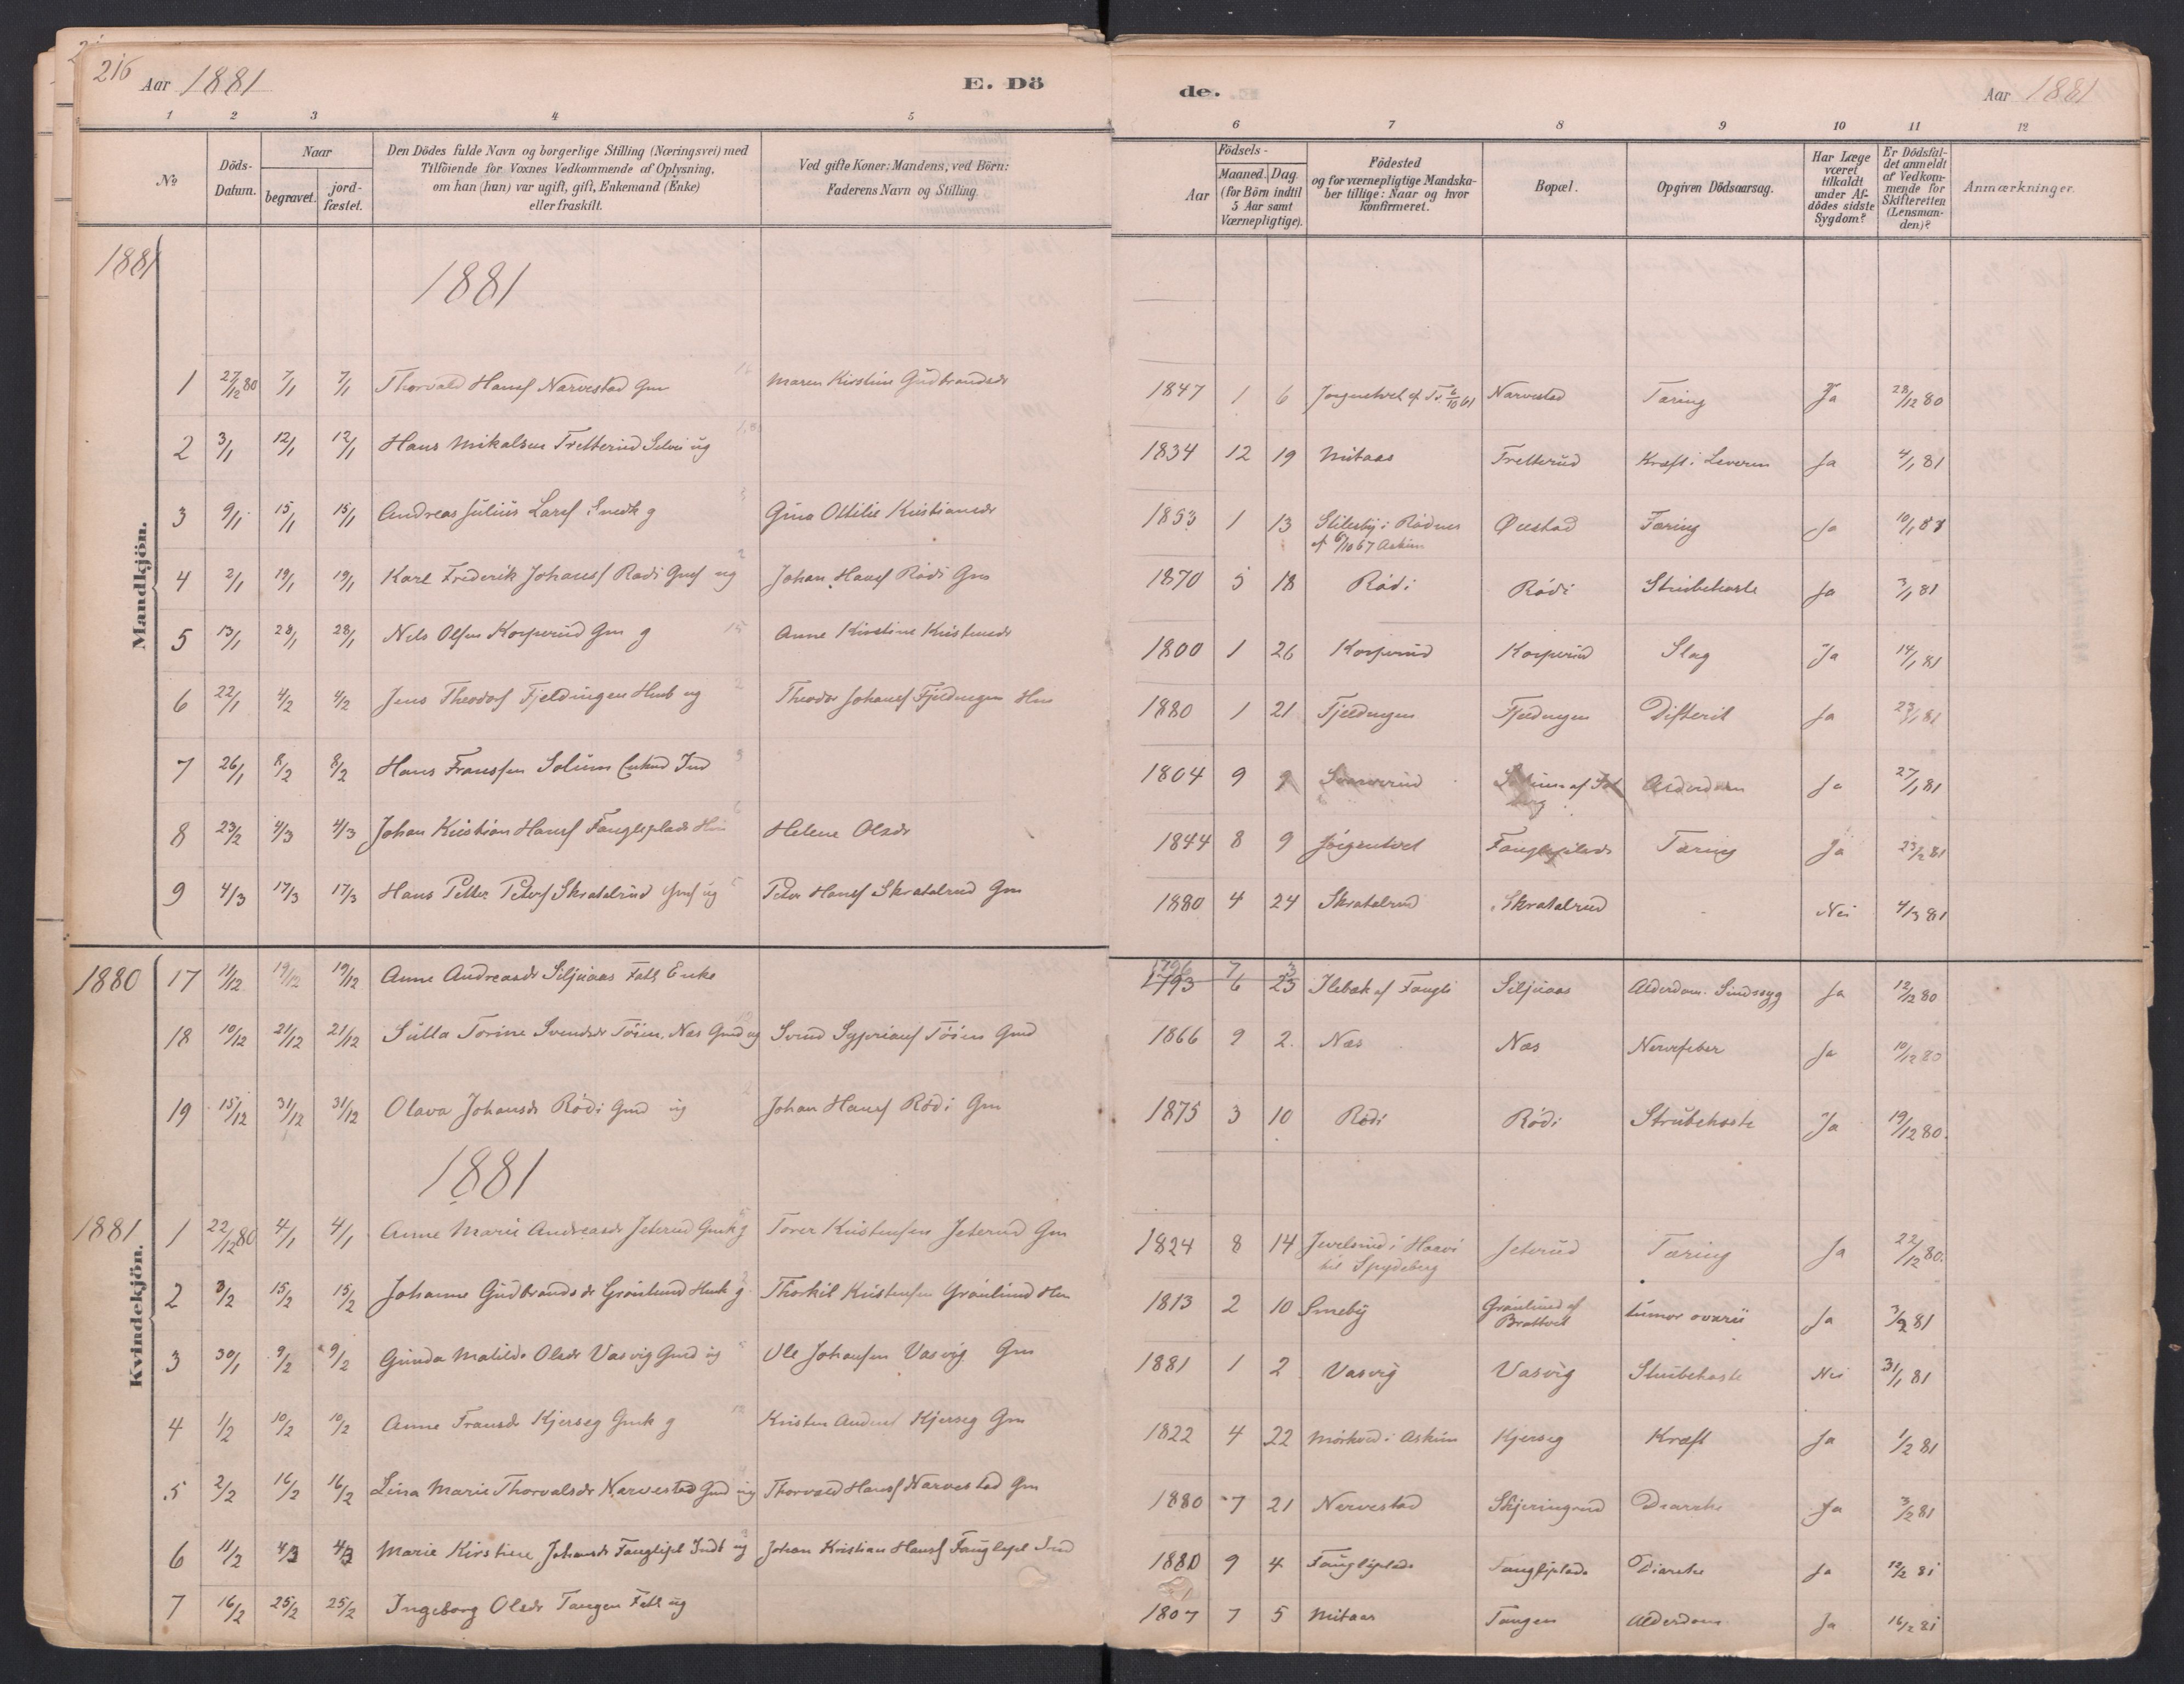 216 Aar 1881 E. Döde. Aar 1881
1 2 3 4 5 6 7 8 9 10 11 12
No
Döds-Datum.
Naar begravet. jordfæstet.
Den Dödes fulde Navn og borgerlige Stilling (Næringsvei) med Tilföiende for Voxnes Vedkommende af Oplysning, om han (hun) var ugift, gift, Enkemand (Enke) eller fraskilt.
Ved gifte Koner: Mandens, ved Börn: Faderens Navn og Stilling.
Födsels- Aar Maaned. Dag. (for Börn indtil 5 Aar samt Værnepligtige).
Födested og for værnepligtige Mandskaber tillige: Naar og hvor konfirmeret.
Bopæl.
Opgiven Dödsaarsag.
Har Læge været tilkaldt under Afdödes sidste Sygdom?
Er Dödsfaldet anmeldt af Vedkommende for Skifteretten (Lensmanden)?
Anmærkninger.
Mandkjön.
1881
1881
1 27/12 80 7/1 7/1 Thorvald Hansf Narvestad Gm Maren Kirstine Gudbrandsdr 1847 1 6 6/10 61 Narvestad Tæring Ja 28/12 80
2 3/1 12/1 12/1 Hans Mikalsen Fretterud Selvei ug 1834 12 19 Mitaas Fretterud Kræft i Leveren Ja 4/1 81
3 9/1 15/1 15/1 Andreas Julius Larsf Gina Ottilie Kristiansdr 1853 1 13 Stileby i Rödnes Øiestad Tæring Ja
6/10 67 Askim
4 2/1 19/1 19/1 Karl Frederik Johansf Rødi Gmf ug Johan Hansf Rödi Gm 1870 5 18 Rödi Rödi Strubehoste Ja 3/1 81
5 13/1 28/1 28/1 Nils Olsen Korperud Gm g Anne Kirstine Kristensdr 1800 1 26 Korperud Korperud Slag Ja 14/1 81
6 22/1 4/2 4/2 Jens Theodorf Fjeldingen Husb ug Theodor Johansf Fjeldingen Hm 1880 1 21 Fjeldingen Fjeldingen Difterit Ja 23/1 81
7 26/1 8/2 8/2 Hans Franssen Solium Enkmd Ind 1804 9 9 Alderdom Ja 27/1 81
8 23/2 4/3 4/3 Johan Kristian Hansf Fangliplads Helene Olsdr 1844 8 9 Jörgentvet Fangliplads Tæring Ja 23/2 81
9 4/3 17/3 17/3 Hans Petter Petersf Skratalrud Gmf ug Peter Hansf Skratalrud Gm 1880 4 24 Skratalrud Skratalrud - Nei 4/3 81
Kvindekjön.
1880 17 11/12 19/12 19/12 Anne Andreasdr Siljuaas Fatt Enke 1796 7 3 1793 6 23 Ilebæk af Fangli Siljuaas Alderdom. Sindssyg Ja 12/12 80
18 10/12 21/12 21/12 Julla Torine Svendsdr Töien, Næs Gmd ug Svend Sypriansf Töien Gmd 1866 9 2. Næs Næs Nervefeber Ja 10/12 80
19 15/12 31/12 31/12 Olava Johansdr Rödi Gmd ug Johan Hansf Rödi Gm 1875 3 10 Rödi Rödi Strubehoste Ja 19/12 80.
1881
1881 1 22/12 80 4/1 4/1 Anne Marie Andreasdr Jeterud Gmk g Torer Kristensen Jeterud Gm 1824 8 14 Jeterud Tæring Ja 22/12 80.
til Spydeberg
2 3/2 15/2 15/2 Johanne Gudbrandsdr Grönlund Husk g Thorkil Kristensen Grönlund Hm 1813 2 10 Smeby Grönlund af Brattvet tumor ovarii Ja 3/2 81
3 30/1 9/2 9/2 Gunda Matilde Olsdr Vasvig Gmd ug Ole Johansen Vasvig Gm 1881 1 2 Vasvig Vasvig Strubehoste Nei 31/1 81
4 1/2 10/2 10/2 Anne Fransdr Kjerseg Gmk g Kristen Andersf Kjerseg Gm 1822 4 22 Mörkved i Askim Kjerseg Kræft Ja 1/2 81
5 2/2 16/2 16/2 Lina Marie Thorvalsdr Narvestad Gmd ug Thorvald Hansf Narvestad Gm 1880 7 21 Nervestad Skjeringrud Diarrhe Ja 3/2 81
6 11/2 4/3 4/3 Marie Kirstine Johansdr Fanglipl Indt ug Johan Kristian Hansf Fanglipl Ind 1880 9 4 Fangliplads Fangliplads Diarrhe Ja 12/2 81
7 16/2 25/2 25/2 Ingeborg Olsdr Tangen Fatt ug 1807 7 5 Mitaas Tangen Alderdom Ja 16/2 81